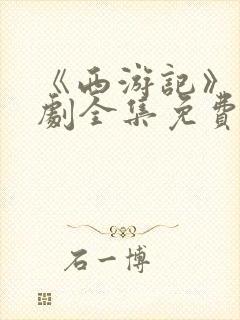 《西游記》
劇全集免費
石一博